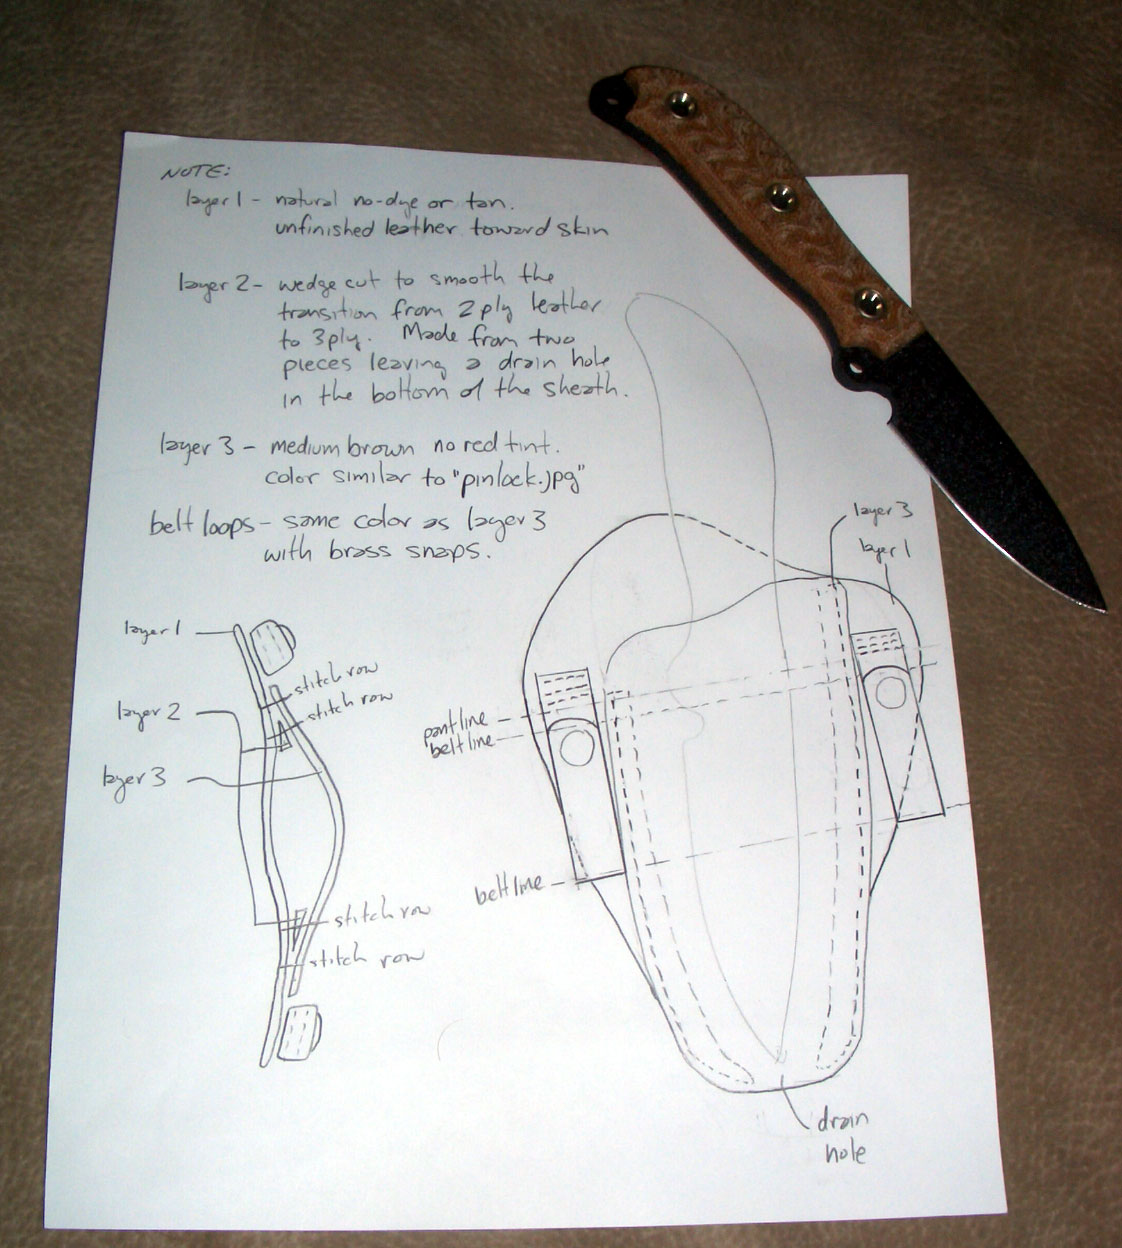 NOTE:
layer 1 - natural no-dye or tan.
unfinished leather toward skin
layer 2 - wedge cut to smooth the
transition from 2 ply leather
to 3 ply. Made from two
pieces leaving a drain hole
in the bottom of the sheath.
layer 3 - medium brown no red tint.
color similar to "pinlock.jpg"
belt loops - same color as layer 3
with brass snaps.
layer 3
layer 1
layer 1
stitch row
stitch row
layer 2
layer 3
pant line
belt line
belt line
stitch row
stitch row
drain
hole